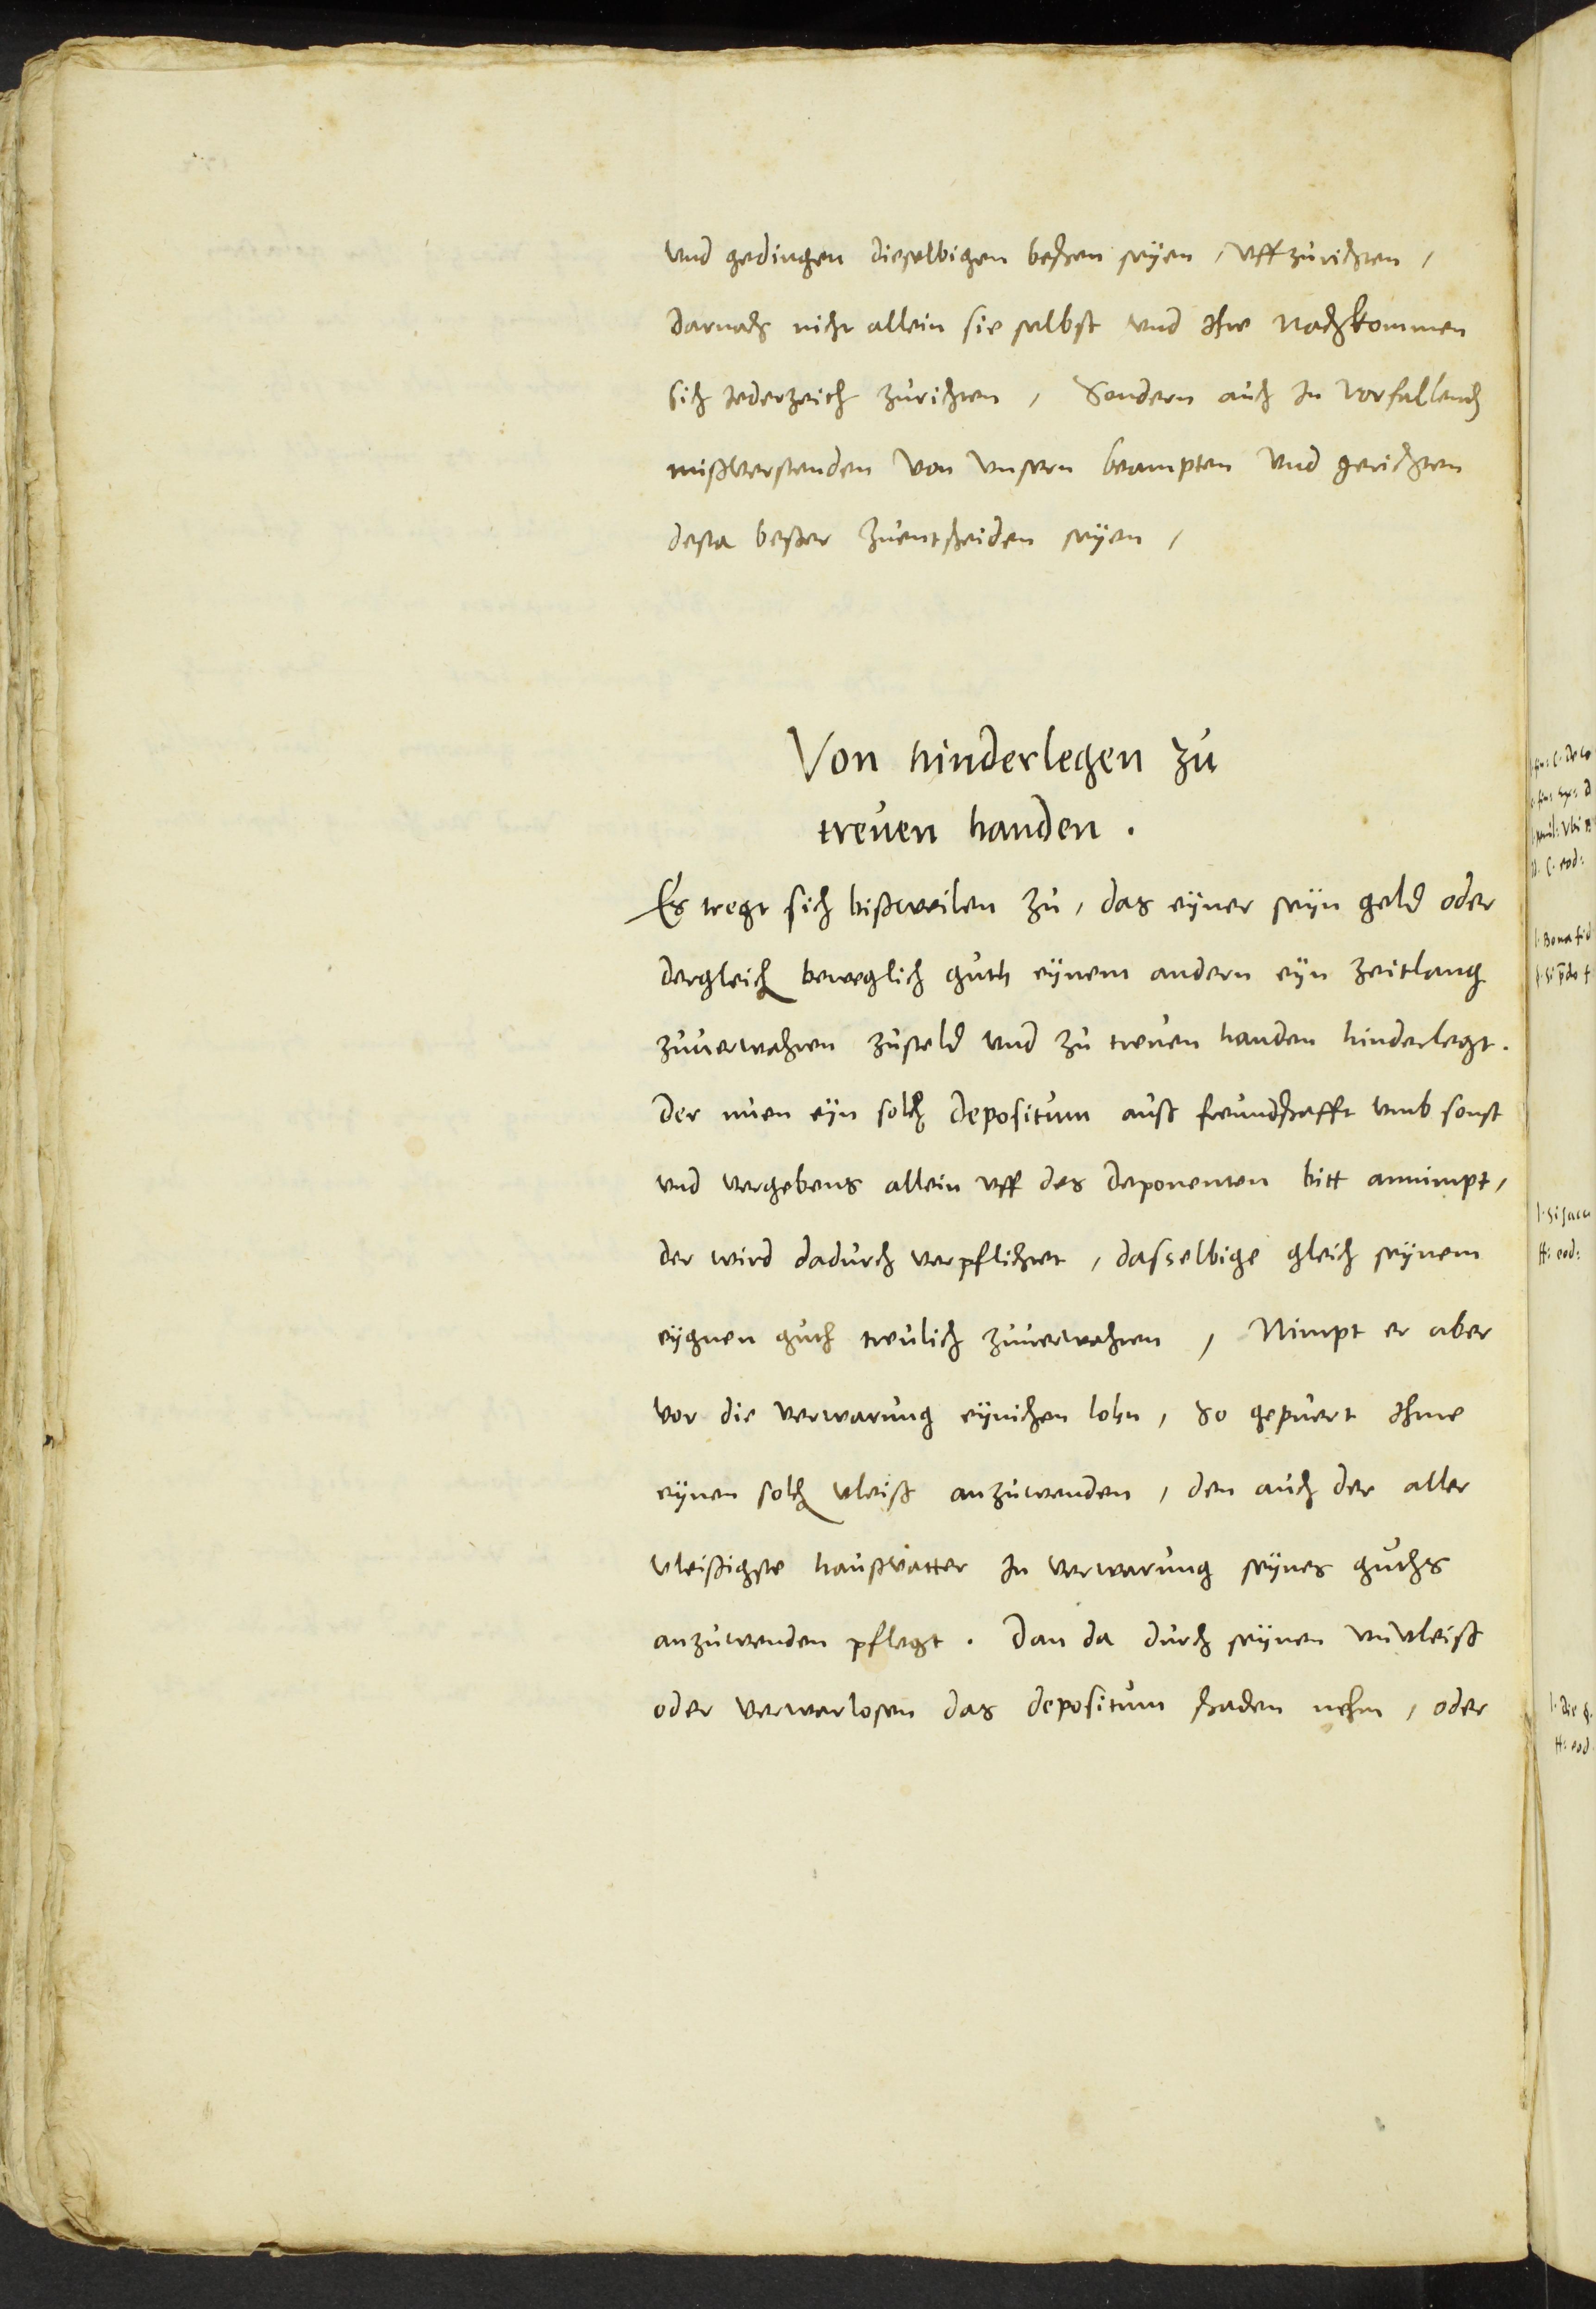 vnd gedingen dieselbigen beschen seÿen, vffzurichten,
darnach nicht allein sie selbst vnd Ihre nachkommen
sich Iederzeith zurichten, Sondern auch In vorfallend
mißverstenden von vnsern beampten vnd gerichten
desta beßer zuentscheiden seÿen,
Von hinderlegen zu
treuen handen.
Es tregt sich bißweilen zu, das eÿner seÿn geld oder
dergleich beweglich guth eÿnem andern eÿn zeitlang
zuuerwahren zusteld vnd zu treuen handen hinderlegt.
Der nuen eÿn solch depositum auß freundschafft vmb sonst
vnd vergebens allein vff des deponenten bitt annimpt,
der wird dadurch verpflichtet, dasselbige gleich seÿnem
eÿgnen guth treulich zuuerwahren, Nimpt er aber
vor die verwarung eÿnichen lohn, so gepuert Ihme
eÿnen solch vleiß anzuwenden, den auch der aller
vleißigste haußvatter In verwarung seÿnes guths
anzuwenden pflegt. Dan da durch seÿnen vnvleiß
oder verwarlosen das depositum schaden nehm, oder
C. eod:
l. Bona fid
ff: eod:
ff: eod